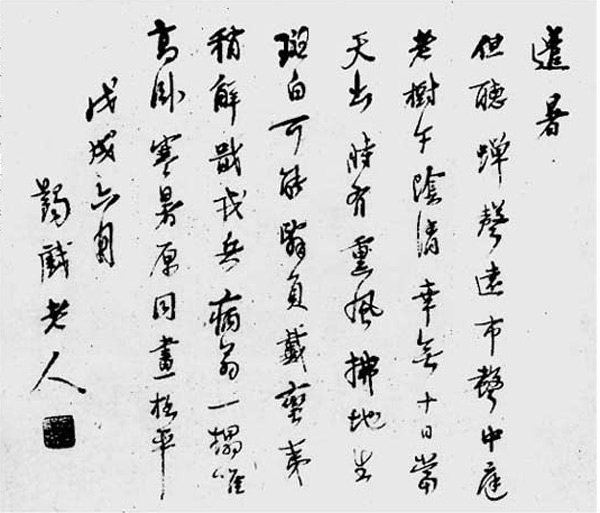 遣暑
但聽蟬聲遠市聲中庭
老樹午陰清幸無十日當
天出時有熏風拂地生
斑白可能負戴蠻夷
稍解戢戎兵病翁一榻唯
高臥寒暑原同平
戊戌六月
蠲戲老人